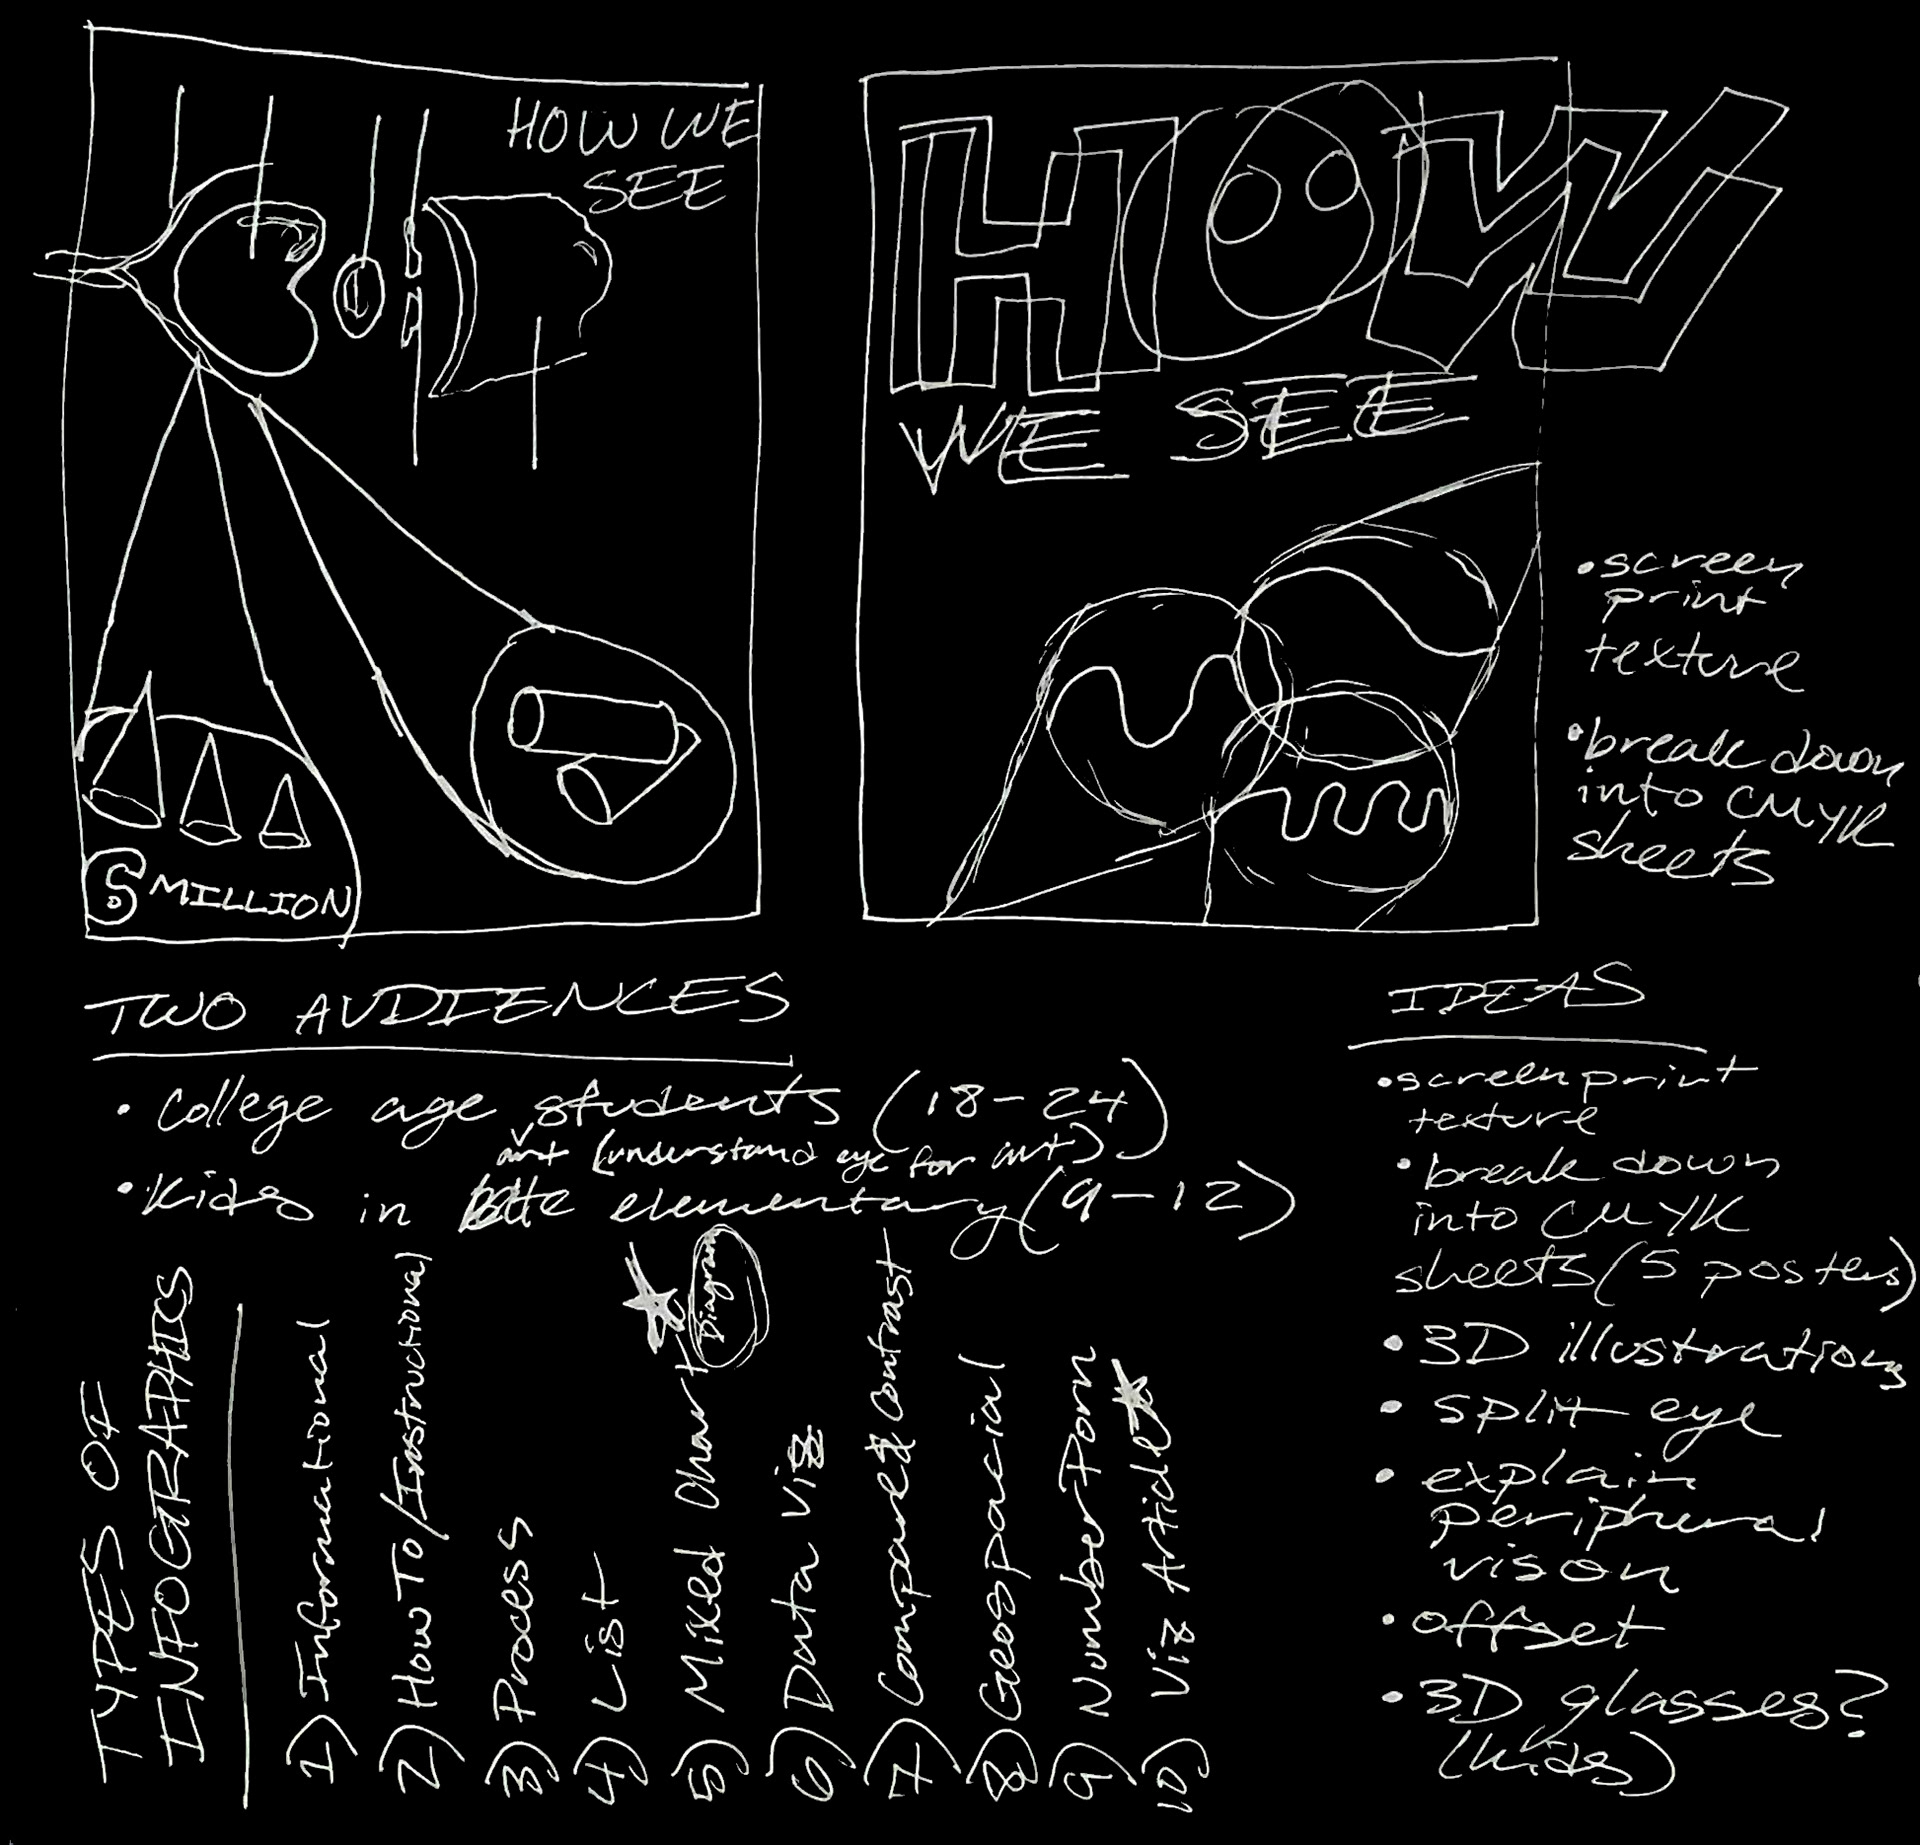 HOW WE
SEE
MILLION
HOW
WE SEE
•screen
print
texture
•break down
into CMYK
sheets
TWO AUDIENCES
• college age students (18-24)
art (understand eye for art)
• Kids in elementary (9-12)
TYPES OF
INFOGRAPHICS
1) Informational
2) How To/Instructional
3) Process
4) List
5) Mixed Chart
Diagram
6) Data Viz
7) Compare & Contrast
8) Geospacial
9) Number Porn
10) Viz Article
IDEAS
•screenprint
texture
•break down
into CMYK
sheets (5 posters)
• 3D illustrations
• split eye
• explain
peripheral
vison
• offset
• 3D glasses?
(kids)